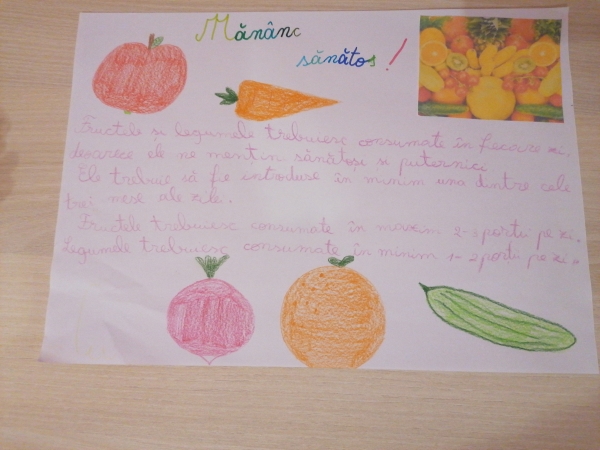 Mănânc
sănătos!
Fructele si legumele trebuiesc consumate în fiecare zi,
deoarece ele ne mențin sănătoși si puternici
Ele trebuie să fie introduse în minim una dintre cele
trei mese ale zile.
Fructele trebuiesc consumate în maxim 2-3 portii pe zi.
Legumele trebuiesc consumate în minim 1-2 portii pe zi.